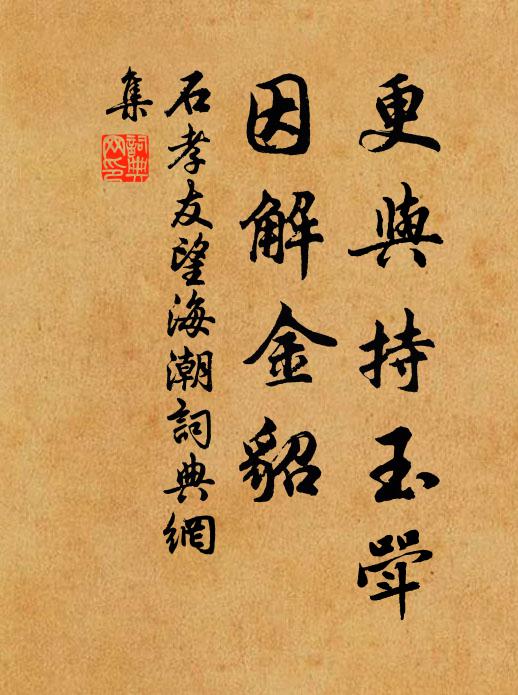 更與持玉斝
因解金貂
石孝友望海潮詞典網
集
詞典
网印